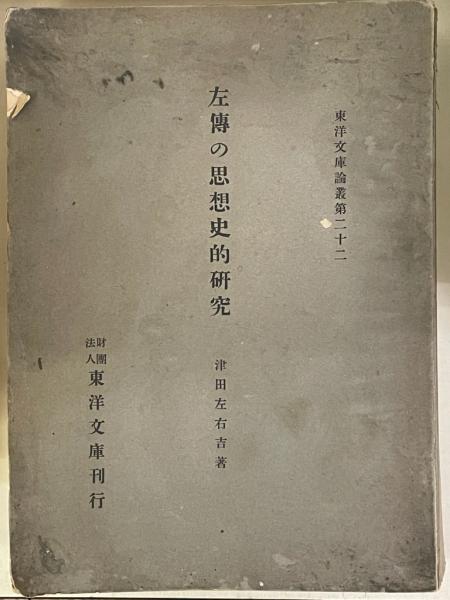 東洋文庫論叢第二十二
左傳の思想史的硏究
津田左右吉著
財團
法人
東洋文庫刊行